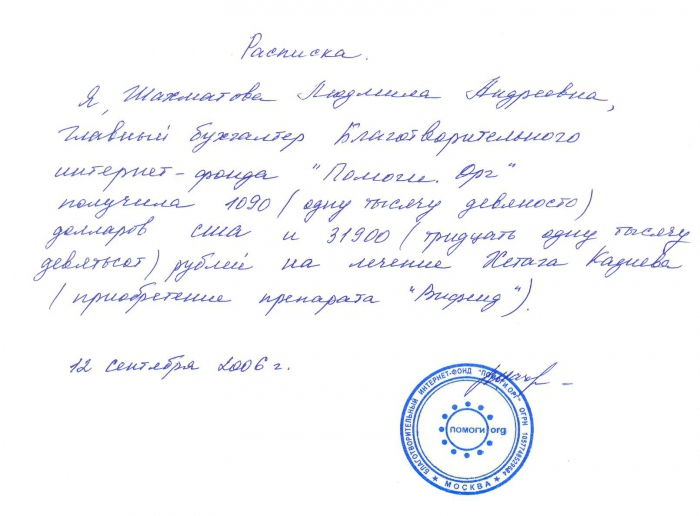 Расписка.
Я, Шахматова Людмила Андреевна,
главный бухгалтер Благотворительного
интернет-фонда "Помоги. Орг"
получила 1090 (одну тысячу девяносто)
долларов сша и 31900 (тридцать одну тысячу
девятьсот) рублей на лечение Хетага Кадиева
(приобретение препарата "Вифенд").
12 сентября 2006 г.
БЛАГОТВОРИТЕЛЬНЫЙ ИНТЕРНЕТ-ФОНД "ПОМОГИ.ОРГ" ОГРН
ПОМОГИ.org
* МОСКВА *